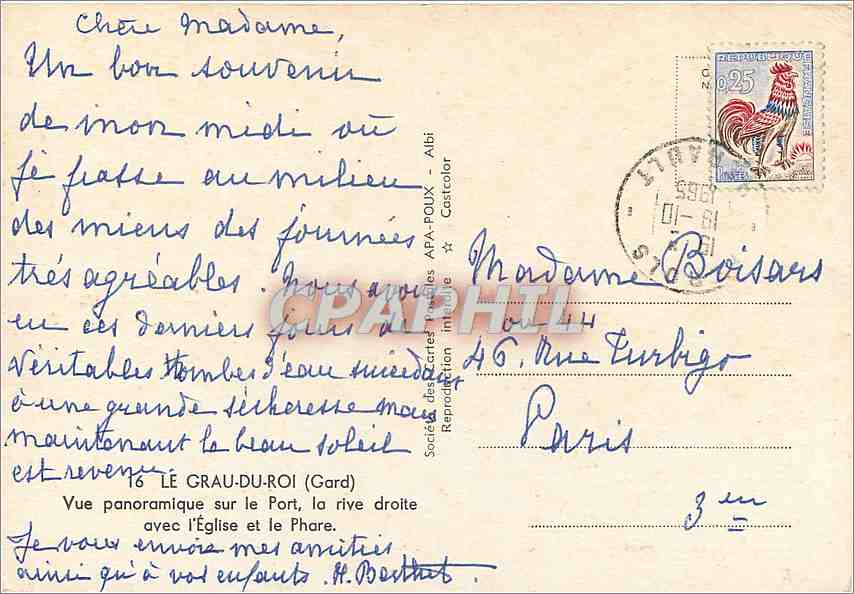 Chère Madame,
Un bon souvenir
de mon midi où
je passe au milieu
des miens des journées
très agréables. Nous avons
eu ces derniers jours de
véritables trombes d'eau succédant
à une grande sécheresse mais
maintenant le beau soleil
est revenu.
16 LE GRAU-DU-ROI (Gard)
Vue panoramique sur le Port, la rive droite
avec l'Église et le Phare.
Je vous envoie mes amitiés
ainsi qu'à vos enfants. H. Berthet.
Société des Cartes Postales APA-POUX - Albi
Reproduction Interdite ☆ Castcolor
CPAPHIL
REPUBLIQUE FRANÇAISE
0,25
POSTES
HERAULT
15 H
19-10
1965
Madame Boisars
ou 44
46. Rue Turbigo
Paris
3 em